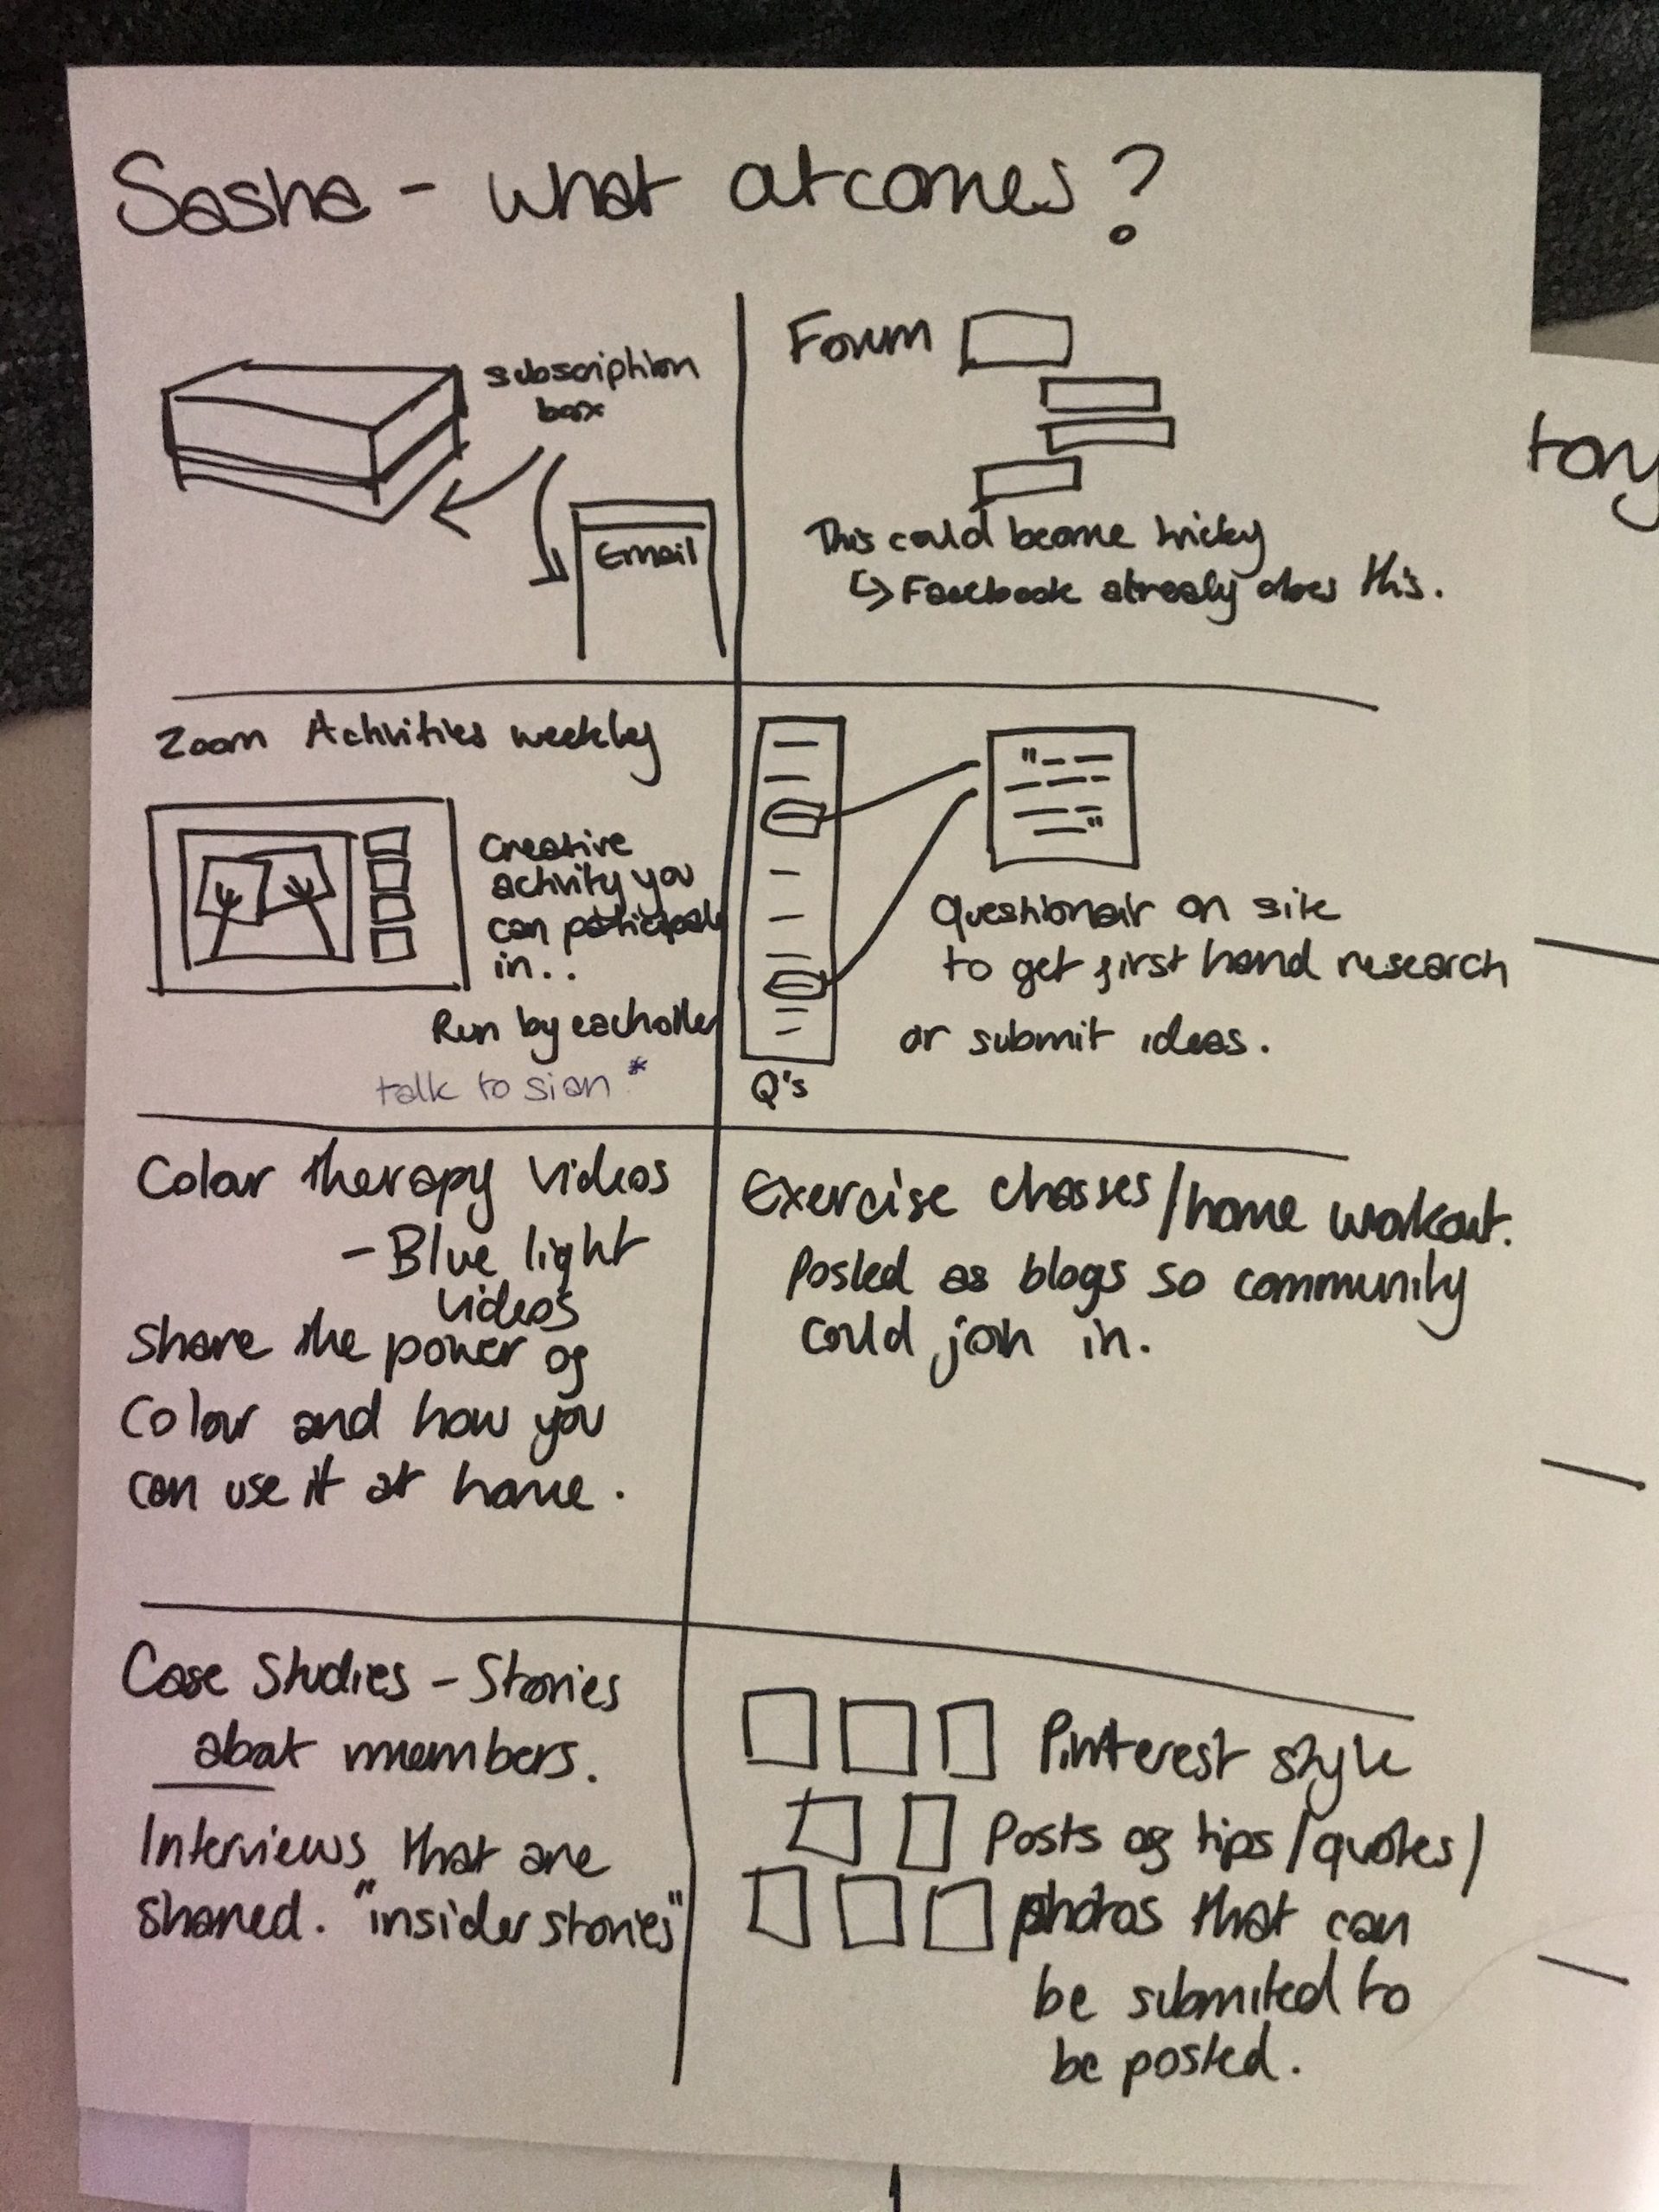 Sasha - what outcomes?
subscription
box
Email
Forum
This could become tricky
↳ Facebook already does this.
Zoom Activities weekly
Creative
activity you
can participate
in..
Run by eachother
talk to sian *
Q's
Questionair on site
to get first hand research
or submit ideas.
Colour therapy videos
- Blue light
videos
Share the power of
Colour and how you
can use it at home.
Exercise classes/home workout.
Posted as blogs so community
could join in.
Case Studies - Stories
about members.
Interviews that are
shared. "insider stories"
Pinterest style
Posts of tips/quotes/
photos that can
be submited to
be posted.